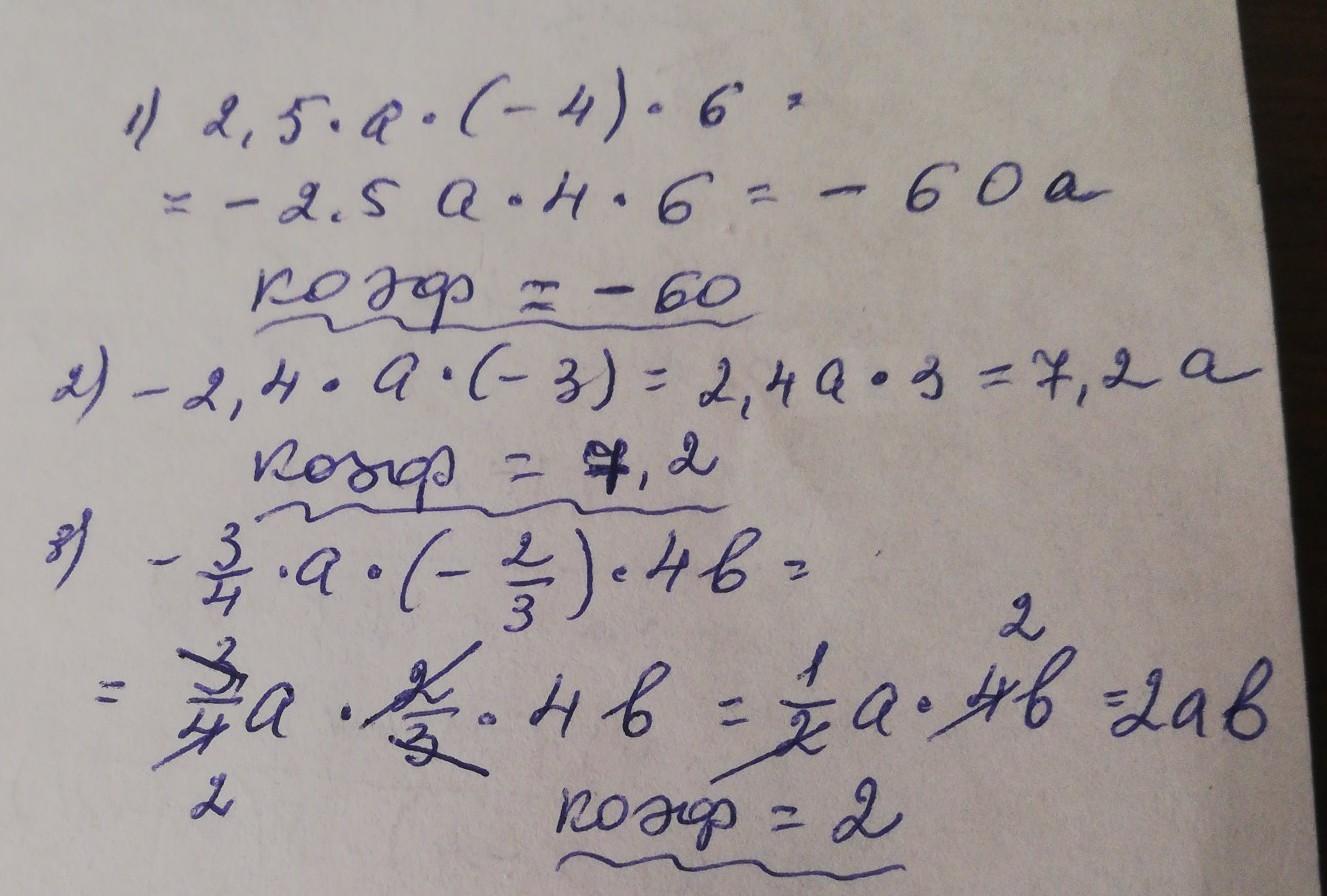 1) 2,5·a·(-4)·6 =
= -2.5 a·4·6 = -60a
коэф = -60
2) -2,4·a·(-3) = 2,4a·3 = 7,2a
коэф = 7,2
3) -3/4·a·(-2/3)·4b =
= 3/4 a·2/3·4b = 1/2 a·4b = 2ab
2 2
коэф = 2